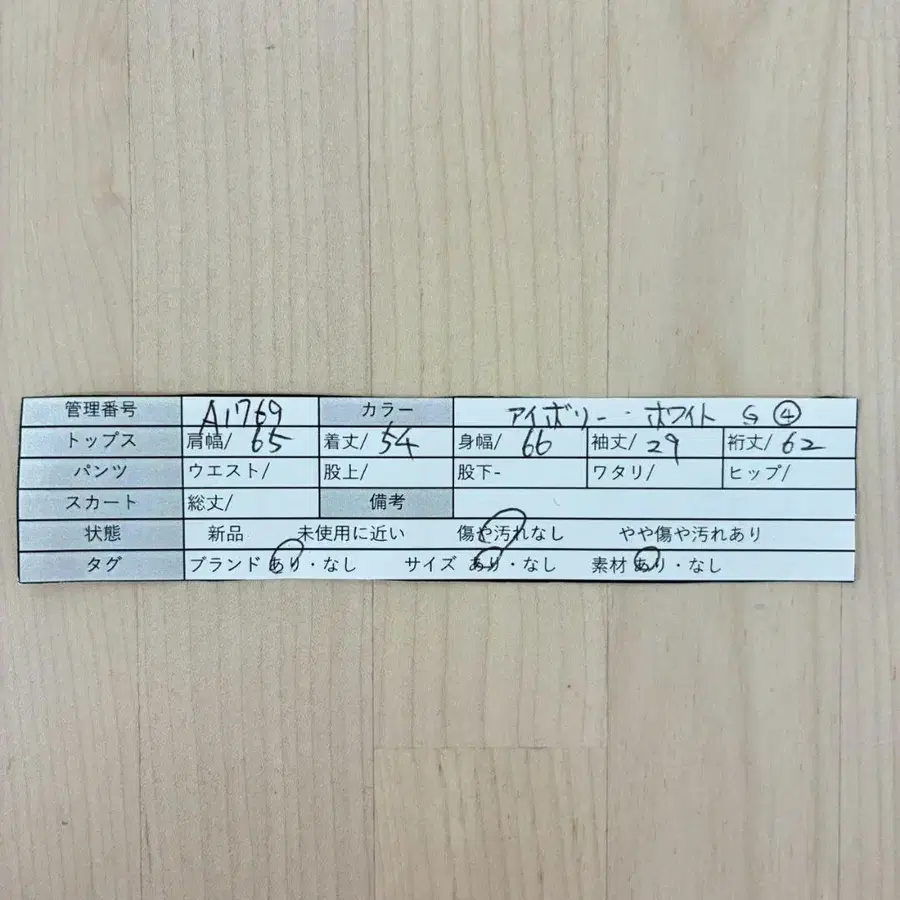 管理番号 A1769 カラー アイボリー・ホワイト G ④
トップス 肩幅/ 65 着丈/ 54 身幅/ 66 袖丈/ 29 裄丈/ 62
パンツ ウエスト/ 股上/ 股下- ワタリ/ ヒップ/
スカート 総丈/ 備考
状態 新品 未使用に近い 傷や汚れなし やや傷や汚れあり
タグ ブランド あり・なし サイズ あり・なし 素材 あり・なし